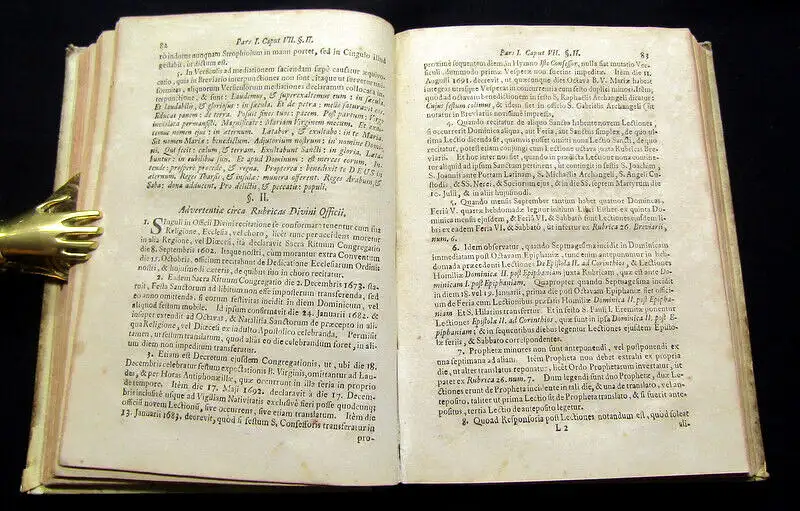 82
Pars I. Caput VII. §. II.
rò indutus nunquam Strophiolum in manu portet, sed in Cingulo illud
gestabit, ut dictum est.
5. In Versiculis ad mediationem faciendam sæpè causatur æquivo-
catio, quia in Breviario interpunctiones non sunt, itaque ut servetur uni-
formitas, aliquorum Versiculorum mediationem declaramus collocata in-
terpunctione, & sunt: Laudemus, & superexaltemus eum: in sæcula.
Et laudabilis, & gloriosus: in sæcula. Et de petra: melle saturavit eos.
Educas panem: de terra. Posuit fines tuos: pacem. Post partum: Virgo
inviolata permansisti. Magnificate: Mariam Virginem mecum. Et exal-
temus nomen ejus: in æternum. Lætabor, & exultabo: in te Maria.
Sit nomen Mariæ: benedictum. Adjutorium nostrum: in nomine Domi-
ni. Qui fecit: cælum, & terram. Exultabunt Sancti: in gloria. Læta-
buntur: in cubilibus suis. Et apud Dominum: est merces eorum. In-
tende: prosperè procede, & regna. Propterea: benedixit te DEUS in
æternum. Reges Tharsis, & insulæ: munera offerent. Reges Arabum, &
Saba: dona adducent. Pro delictis, & peccatis: populi.
§. II.
Advertentiæ circa Rubricas Divini Officii.
1. Singuli in Officii Divini recitatione se conformare tenentur cum sua
Religione, Ecclesia, vel choro, licèt tunc per accidens morentur
in alia Regione, vel Diœcesi, ità declaravit Sacra Rituum Congregatio
die 8. Septembris 1602. Itaque nostri, cum morantur extra Conventum
die 15. Octobris, officium recitabunt de Dedicatione Ecclesiarum Ordinis
nostri, & hujusmodi cæteris, de quibus suo in choro recitatur.
2. Eadem Sacra Rituum Congregatio die 2. Decembris 1673. sta-
tuit, Festa Sanctorum ad libitum non esse imposterum transferenda, sed
eo anno omittenda, si eorum festivitas incidit in diem Dominicum, vel
aliquod festum mobile. Id ipsum confirmavit die 24. Januarii 1682. &
insuper extendit ad Octavas, & Natalitia Sanctorum de præcepto in ali-
qua Religione, vel Diœcesi ex indulto Apostolico celebranda. Permisit
tamen, ut festum translatum, quod alias eo die celebrandum foret, in ali-
um diem non impeditum transferatur.
3. Etiam est Decretum ejusdem Congregationis, ut, ubi die 18.
Decembris celebratur festum expectationis B. Virginis, omittantur ad Lau-
des, & per Horas Antiphonæ illæ, quæ occurrunt in illa feria in proprio
de tempore. Itèm die 17. Maji 1692. declaravit à die 17. Decem-
bris inclusivè usque ad Vigiliam Nativitatis exclusivè fieri posse quodcunque
officium novem Lectionum, sive occurrens, sive etiam translatum. Itèm die
13. Januarii 1683. decrevit, quòd si festum S. Confessoris transferatur in
pro-
Pars I. Caput VII. §. II.
83
proximè sequentem diem, in Hymno Iste Confessor, nulla fiat mutatio Ver-
siculi, dummodo primæ Vesperæ non fuerint impeditæ. Itèm die 11.
Augusti 1691. decrevit, ut quæcunque dies Octava B. V. Mariæ habeat
integras utrasque Vesperas in concurrentia cum festo duplici minori. Itèm,
quòd ad octavam benedictionem in festo S. Raphaëlis Archangeli dicatur:
Cujus festum colimus, & idem fiet in officio S. Gabrielis Archangeli sicut
notatur in Breviariis novissimè impressis.
4. Quando recitatur de aliquo Sanctos habente novem Lectiones,
si occurrerit Dominica aliqua, aut Feria, aut Sanctus simplex, de quo ul-
tima Lectio dicenda sit, quamvis posset omitti nona Lectio Sancti, de quo
recitatur, potest etiam copulari cum Lectione octava juxta Rubricas Brevi-
arii. Et hoc inter nos fiet, quando in præacta Lectione nona contine-
tur aliquid ad ipsum Sanctum pertinens, ut contingit in festis S. Joachim,
S. Joannis ante Portam Latinam, S. Michaëlis Archangeli, S. Angeli Cu-
stodis, & SS. Nerei, & Sociorum ejus, & in die SS. septem Martyrum die
10. Julii, & in aliis hujusmodi.
5. Quando mensis September tantùm habet quatuor Dominicas,
Feria V. quartæ hebdomadæ legitur initium Libri Esther ex quinta Do-
minica mensis ejusdem, & Feria VI. & Sabbato sunt Lectiones ejusdem li-
bri ex eadem Feria VI. & Sabbato, ut infertur ex Rubrica 26. Breviarii,
num. 6.
6. Idem observatur, quando Septuagesima incidit in Dominicam
immediatam post Octavam Epiphaniæ, tunc enim anteponuntur in heb-
domada præcedenti Lectiones De Epistola II. ad Corinthios, & Lectiones
Homiliæ Dominicæ II. post Epiphaniam juxta Rubricam, quæ est ante Do-
minicam I. post Epiphaniam. Quapropter quando Septuagesima incidit
in diem 18. vel 19. Januarii, prima die post Octavam Epiphaniæ fiet offici-
um de Feria cum Lectionibus præfatis Homiliæ Dominicæ II. post Epipha-
niam Et S. Hilarius transfertur. Et in festo S. Pauli I. Eremitæ ponentur
Lectiones Epistolæ II. ad Corinthios, quæ sunt in ipsa Dominica II. post E-
piphaniam; & in sequentibus diebus legentur Lectiones ejusdem Episto-
læ feriis, & Sabbato correspondentes.
7. Prophetæ minores non sunt anteponendi, vel postponendi ex
una septimana ad aliam. Itèm Propheta non debet extrahi ex propria
die, ut alter translatus reponatur, licèt Ordo Prophetarum invertatur, ut
patet ex Rubrica 26. num. 7. Dum legendi sunt duo Prophetæ, duæ Le-
ctiones erunt de Propheta incidente in tali die, & una de translato, vel an-
teposito, taliter ut prima Lectio sit de Propheta translato, & si fuerit ante-
positus, tertia Lectio de anteposito legetur.
8. Quoad Responsoria post Lectiones notandum est, quod soleat
L 2
ali-